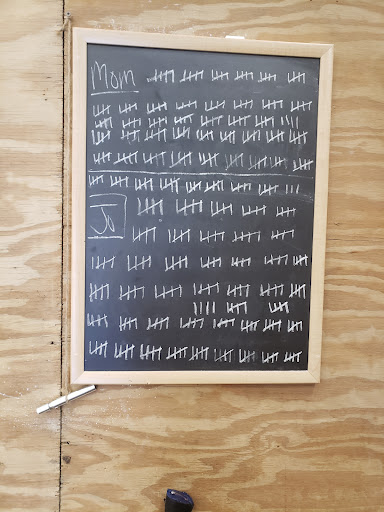 Mom
Jo